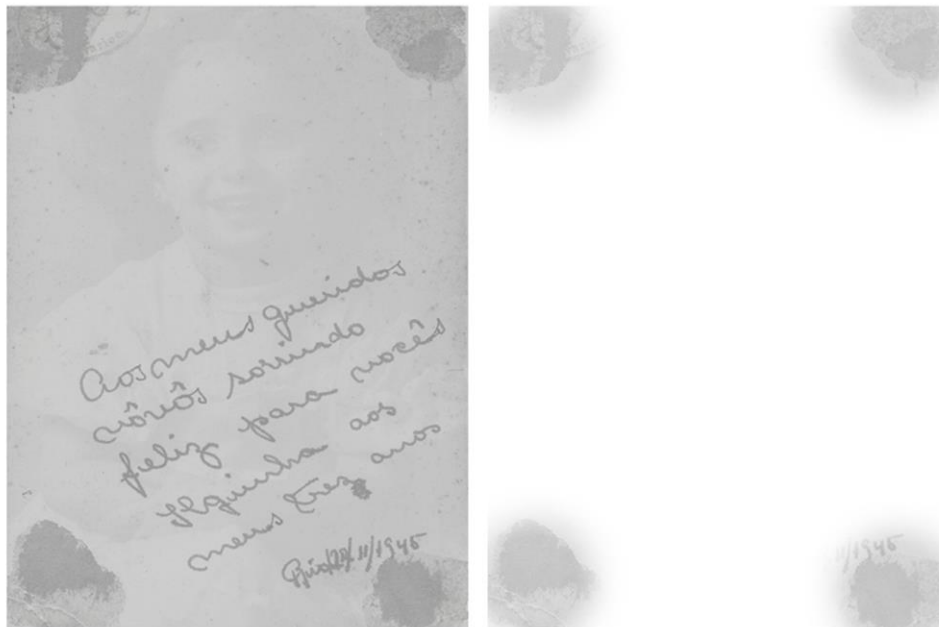 Aos meus queridos
vôvôs sorrindo
feliz para vocês
aos
meus trez anos
11/1945
11/1945